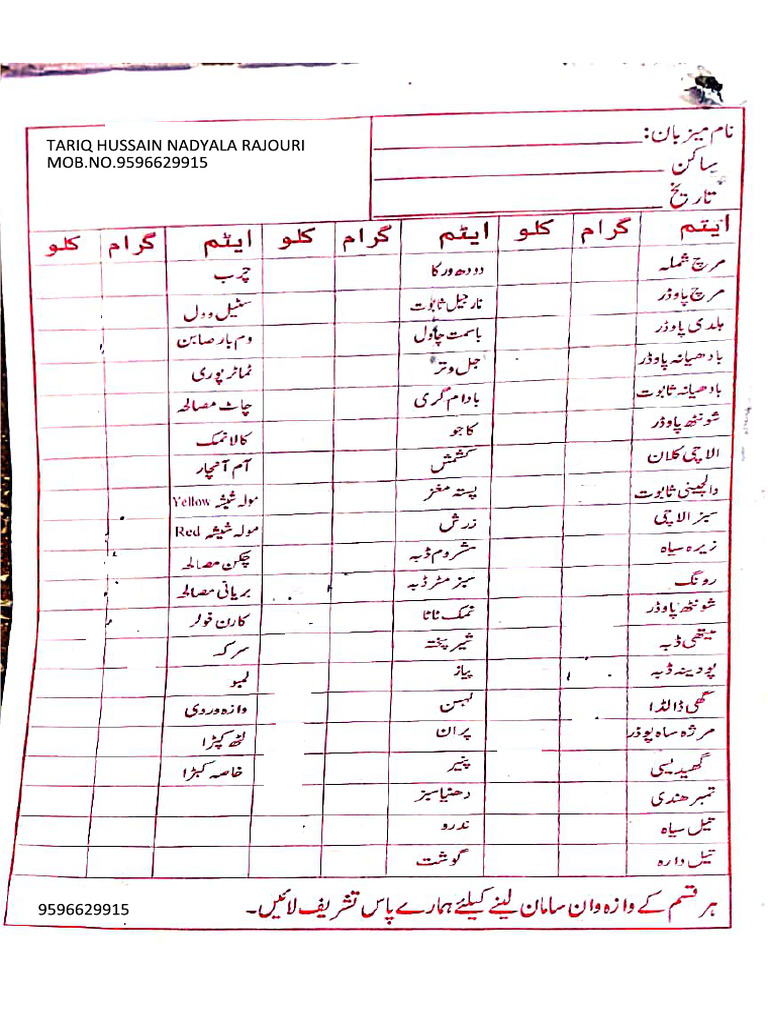 TARIQ HUSSAIN NADYALA RAJOURI
MOB.NO.9596629915
نام میزبان:
ساکن
تاریخ
ایٹم گرام کلو ایٹم گرام کلو ایٹم گرام کلو
مرچ شملہ دودھ ورکا چرب
مرچ پاوڈر نارجیل ثابوت سٹیل وول
ہلدی پاوڈر باسمت چاول وم بار صابن
بادھیانہ پاوڈر جل وتر ٹماٹر پوری
بادھیانہ ثابوت بادام گری چاٹ مصالحہ
شونٹھ پاوڈر کاجو کالا نمک
الاچی کلان کشمش آم آنچار
دالچینی ثابوت پستہ مغز مولہ شیشہ Yellow
سبز الاچی زرش مولہ شیشہ Red
زیرہ سیاہ مشروم ڈبہ چکن مصالحہ
رونگ سبز مٹر ڈبہ بریانی مصالحہ
شونٹھ پاوڈر نمک ٹاٹا کارن فولر
میتھی ڈبہ شیر پختہ سرکہ
پودینہ ڈبہ پیاز لمبو
گھی ڈالڈا لہسن وازہ وردی
مرژہ ساہ پوڈر پران لٹھ کپڑا
گھیدیسی پنیر خاصہ کپڑا
تمبر ھندی دھنیا سبز
تیل سیاہ ندرو
تیل دارہ گوشت
ہر قسم کے وازہ وان سامان لینے کیلئے ہمارے پاس تشریف لائیں۔
9596629915